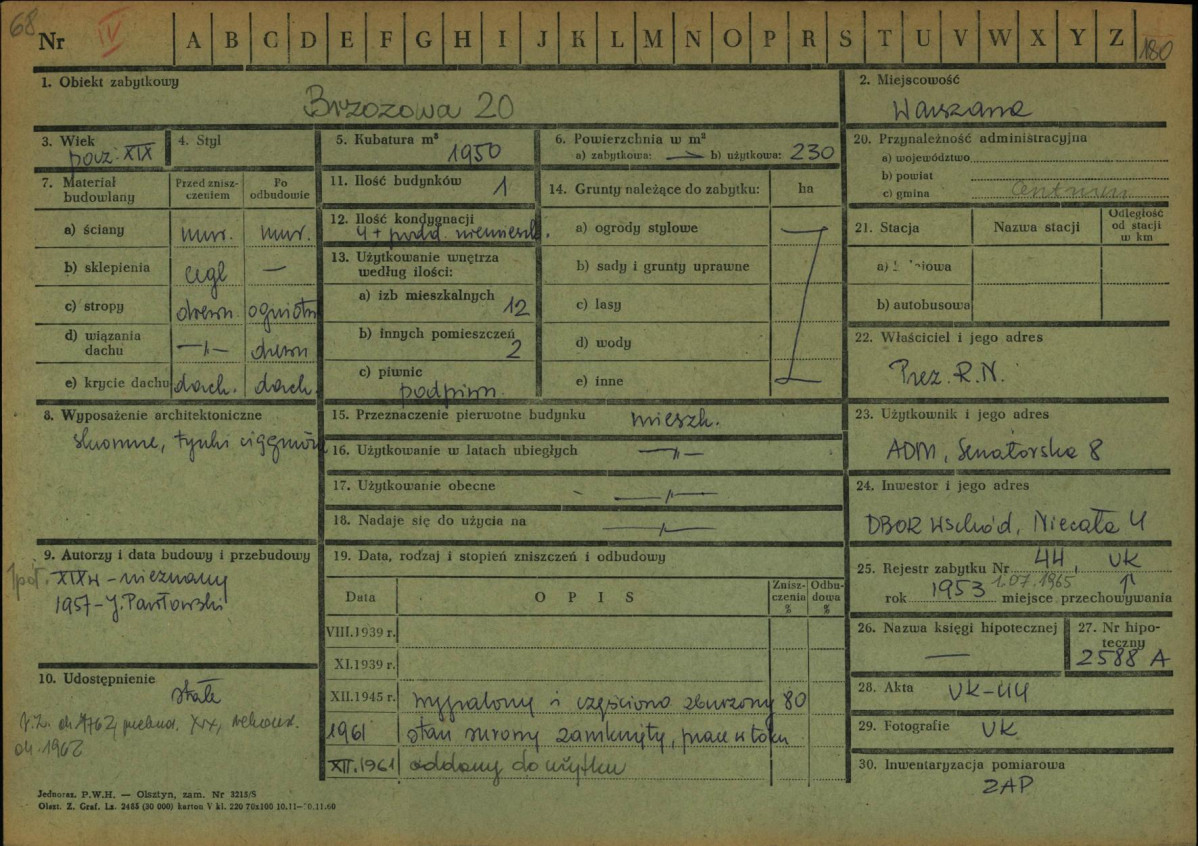 68
Nr IV A B C D E F G H I J K L M N O P R S T U V W X Y Z 180
1. Obiekt zabytkowy
Brzozowa 20
2. Miejscowość
Warszawa
3. Wiek
pocz. XIX
4. Styl
5. Kubatura m³
1950
6. Powierzchnia w m²
a) zabytkowa: — b) użytkowa: 230
20. Przynależność administracyjna
a) województwo
b) powiat
c) gmina Centrum
7. Materiał budowlany
Przed zniszczeniem
Po odbudowie
a) ściany mur. mur.
b) sklepienia cegl —
c) stropy drewn ogniotr
d) wiązania dachu —"— drewn
e) krycie dachu dach. dach.
11. Ilość budynków 1
12. Ilość kondygnacji
4 + podd. niemieszk.
13. Użytkowanie wnętrza
według ilości:
a) izb mieszkalnych
12
b) innych pomieszczeń
2
c) piwnic
podpiwn.
14. Grunty należące do zabytku: ha
a) ogrody stylowe
b) sady i grunty uprawne
c) lasy
d) wody
e) inne
21. Stacja
Nazwa stacji
Odległość od stacji w km
b) autobusowa
22. Właściciel i jego adres
Prez. R.N.
8. Wyposażenie architektoniczne
skromne, tynki
15. Przeznaczenie pierwotne budynku mieszk.
16. Użytkowanie w latach ubiegłych —"—
17. Użytkowanie obecne —"—
18. Nadaje się do użycia na —"—
23. Użytkownik i jego adres
ADM, Senatorska 8
24. Inwestor i jego adres
DBOR Wschód, Niecała 4
9. Autorzy i data budowy i przebudowy
1 poł. XIX w – nieznany
1957 – J. Pawłowski
19. Data, rodzaj i stopień zniszczeń i odbudowy
Data
O P I S
Zniszczenia %
Odbudowa %
VIII.1939 r.
XI.1939 r.
XII.1945 r. wypalony i częściowo zburzony 80
1961 stan surowy zamknięty, prace w toku
XII.1961 oddany do użytku
25. Rejestr zabytku Nr 44, UK
1.07.1965
rok 1953 miejsce przechowywania
26. Nazwa księgi hipotecznej
—
27. Nr hipoteczny
2588 A
10. Udostępnienie
stałe
ok. 1762, przebud. XIX,
ok. 1962
28. Akta UK-44
29. Fotografie UK
30. Inwentaryzacja pomiarowa
ZAP
Jednoraz. P.W.H. — Olsztyn, zam. Nr 3215/S
Olszt. Z. Graf. Lz. 2465 (30 000) karton V kl. 220 70x100